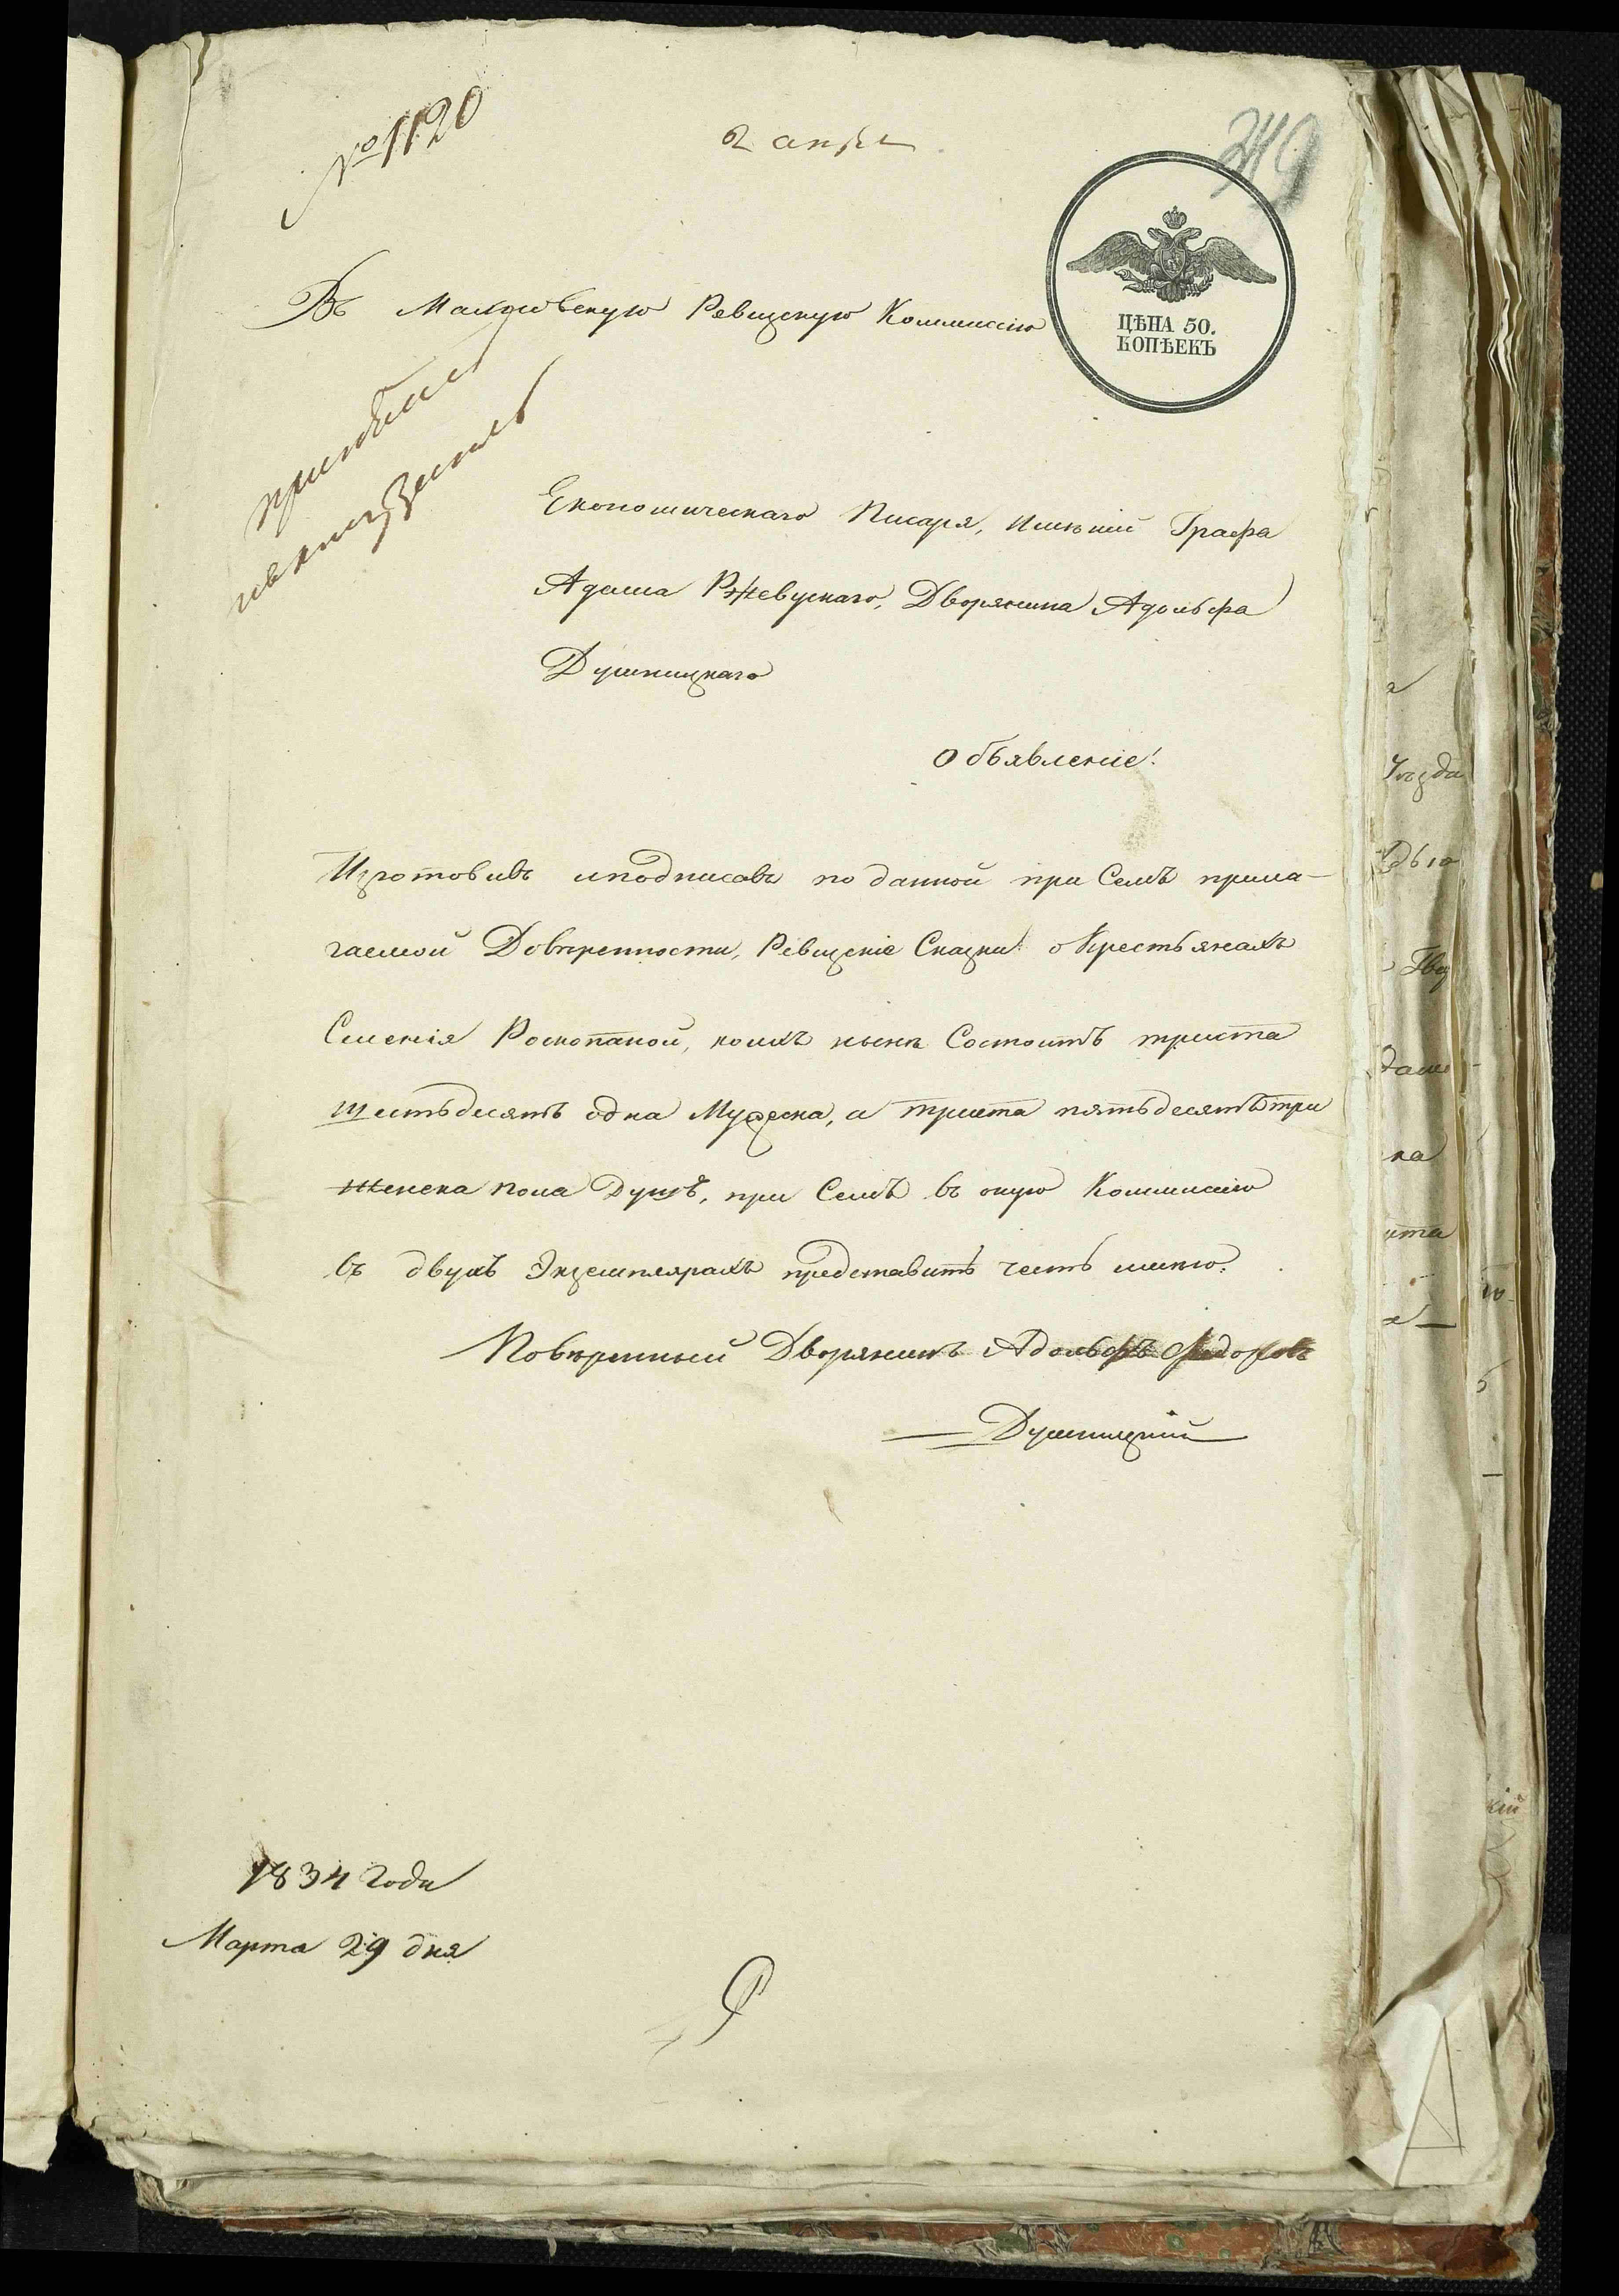 № 1120
2 апрл
Въ Махновскую Ревизскую Коммисію
ЦѢНА 50.
КОПѢЕКЪ
Економическаго Писаря, Имѣній Графа
Адама Ржевускаго, Дворянина Адольфа
Душницкаго
Объявленіе!
Изготовивъ иподписавъ по данной при Семъ прила-
гаемой Довѣренности, Ревизскіе Сказки о Крестьянахъ
Силенія Роскопаной, коихъ нынѣ Состоитъ триста
шестьдесятъ одна Мужеска, а триста пятьдесятъ три
женска пола Душъ, при Семъ въ оную Коммисію
въ двухъ Экземплярахъ представить честь имѣю.
Повѣренный Дворянинъ Адольфъ Федоровъ
Душницкій
1834 Года
Марта 29 дня